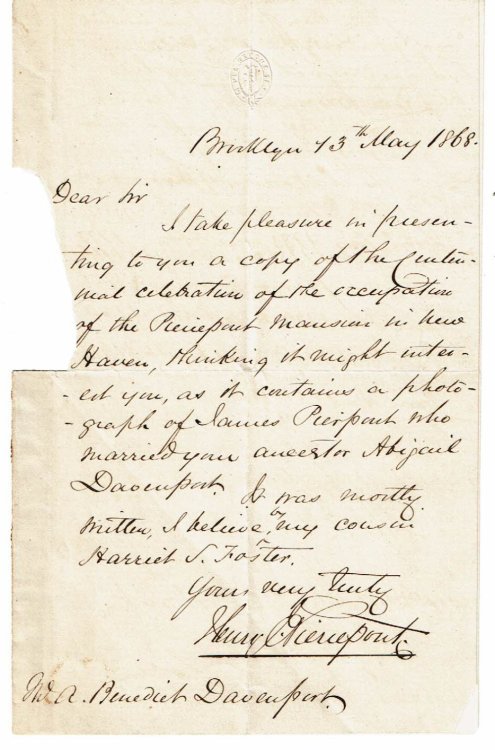 Brooklyn 13th May 1868.
Dear Sir
I take pleasure in presen-
ting to you a copy of the Centen-
nial celebration of the occupation
of the Pierrepont Mansion in New
Haven, thinking it might inter-
- est you, as it contains a photo-
- graph of James Pierpont who
married your ancestor Abigail
Davenport. It was mostly
written, I believe, by my cousin
Harriet S. Foster.
Yours very truly
Henry E Pierrepont.
A. Benedict Davenport